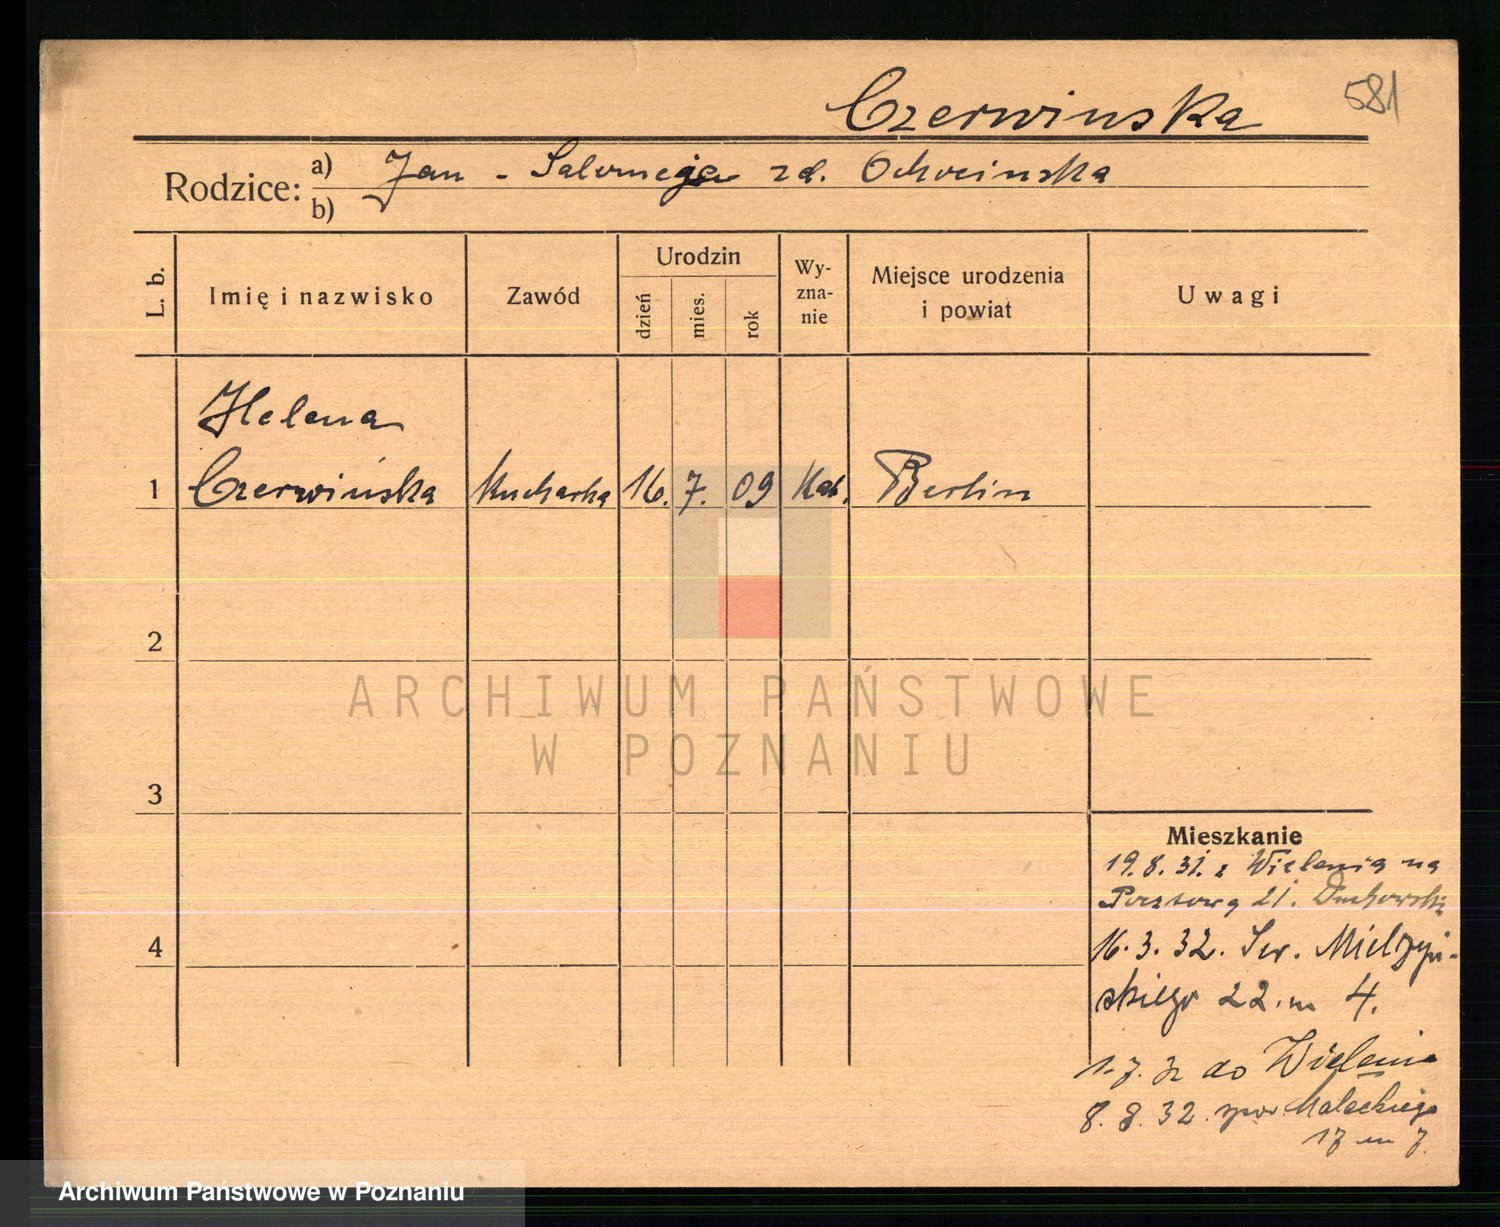 581
Czerwinska
Rodzice: a) Jan - Salomeja zd. Ochocinska
b)
L. b.
Imię i nazwisko
Zawód
Urodzin
dzień
mies.
rok
Wy-
zna-
nie
Miejsce urodzenia
i powiat
Uwagi
Helena
1 Czerwińska Kucharka 16. 7. 09 Kat. Berlin
2
ARCHIWUM PAŃSTWOWE
W POZNANIU
3
Mieszkanie
19.8.31. z Wielenia na
Pocztową 21. Duchowski
4
16.3.32. Sew. Mielżyń-
skiego 22. m 4.
1.7.32 do Wielenia
8.8.32. zpow. Małeckiego
17 m 7.
Archiwum Państwowe w Poznaniu